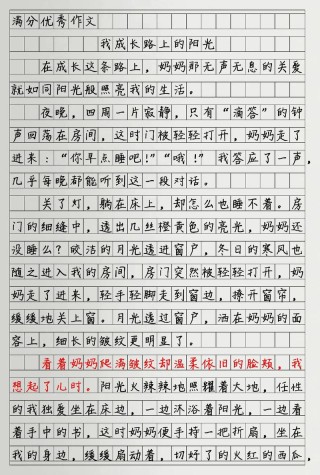 满分优秀作文
我成长路上的阳光
在成长这条路上，妈妈那无声无息的关爱
就如同阳光般照亮我的生活。
夜晚，四周一片寂静，只有“滴答”的钟
声回荡在房间，这时门被轻轻打开，妈妈走了
进来：“你早点睡吧！”“哦！”我答应了一声，
几乎每晚都能听到这一段对话。
关了灯，躺在床上，却怎么也睡不着。房
门的细缝中，透出几丝橙黄色的亮光，妈妈还
没睡么？皎洁的月光透进窗户，冬日的寒风也
随之进入我的房间，房门突然被轻轻打开，妈
妈走了进来，轻手轻脚走到窗边，撩开窗帘，
缓缓地关上窗。月光透过窗户，洒在妈妈的面
容上，细长的皱纹更明显了。
看着妈妈爬满皱纹却温柔依旧的脸颊，我
想起了儿时。阳光火辣辣地照耀着大地，任性
的我独爱坐在床边，一边沐浴着阳光，一边看
着手中的书，这时妈妈便手持一把折扇，坐在
我的身边，缓缓扇动着，切好了的火红的西瓜，